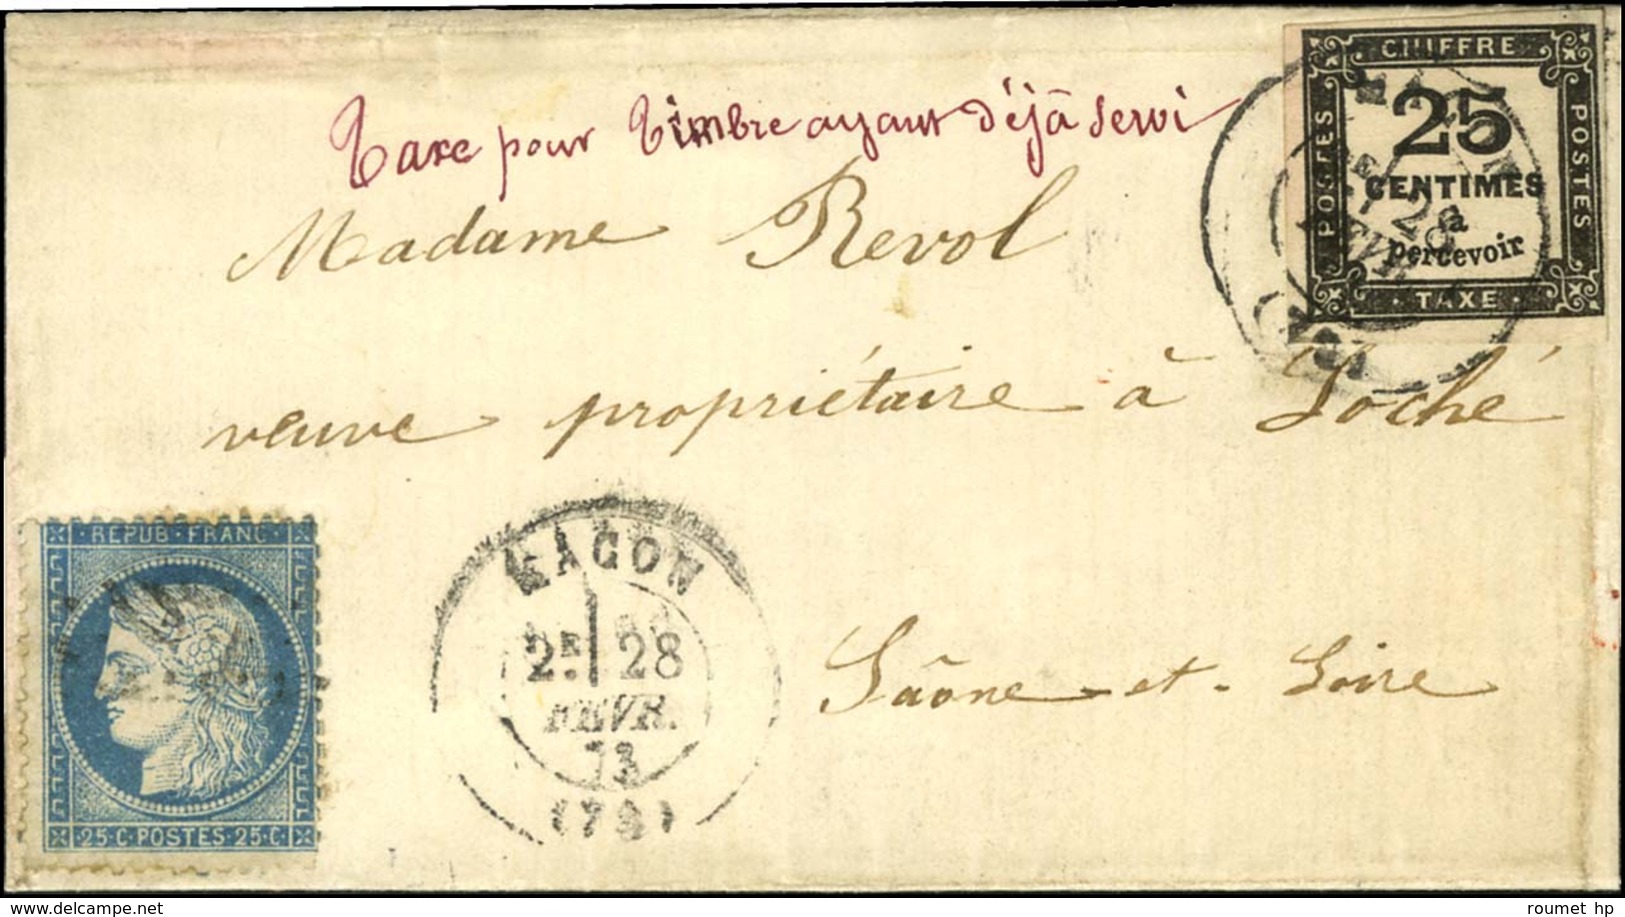 CHIFFRE
25
CENTIMES
à
percevoir
POSTES
POSTES
· TAXE ·
28
FEVR.
Taxe pour Timbre ayant déjà servi
Madame Revol
veuve propriétaire à Loché
Saône-et-Loire
REPUB·FRANC·
25·C·POSTES·25·C·
MACON
2E 28
FEVR.
73
roumet hp